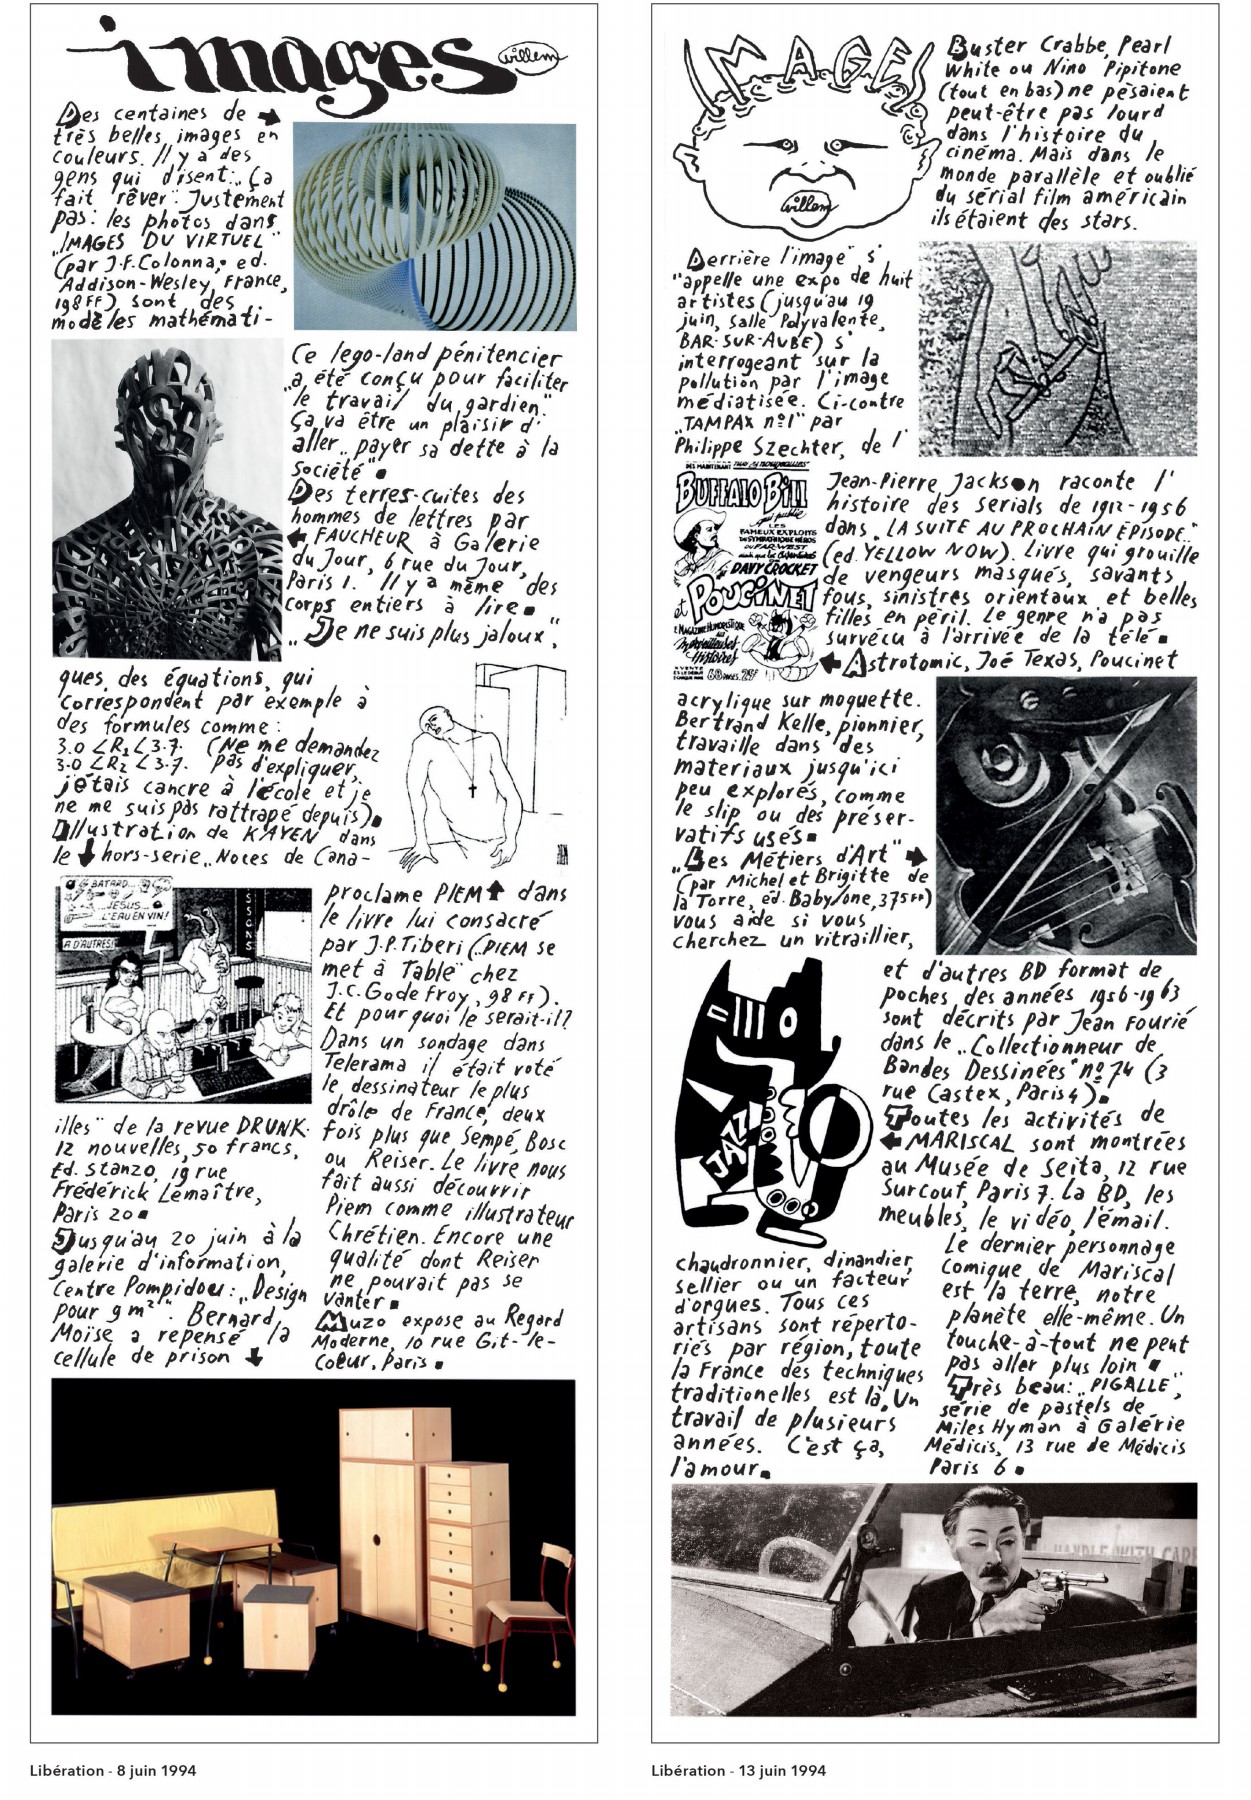 images
willem
Des centaines de
très belles images en
couleurs. Il y a des
gens qui disent: „Ça
fait rêver". Justement
pas: les photos dans
„IMAGES DU VIRTUEL"
(par J.F. Colonna, ed.
Addison-Wesley, France,
198 FF) sont des
modèles mathémati-
Ce lego-land pénitencier
„a été conçu pour faciliter
le travail du gardien."
Ça va être un plaisir d'
aller „payer sa dette à la
société".
Des terres-cuites des
hommes de lettres par
FAUCHEUR à Galerie
du Jour, 6 rue du Jour,
Paris 1. Il y a même des
corps entiers à lire.
„Je ne suis plus jaloux",
ques, des équations, qui
correspondent par exemple à
des formules comme:
3.0 < R1 < 3.7. (Ne me demandez
3.0 < R2 < 3.7. pas d'expliquer,
j'étais cancre à l'école et je
ne me suis pas rattrapé depuis).
Illustration de KAYEN dans
le hors-serie „Noces de Cana-
BATARD...
...JESUS...
L'EAU EN VIN!
A D'AUTRES!
proclame PIEM dans
le livre lui consacré
par J.P. Tiberi („PIEM se
met à Table" chez
J.C. Godefroy, 98 FF).
Et pourquoi le serait-il?
Dans un sondage dans
Telerama il était voté
le dessinateur le plus
drôle de France, deux
fois plus que Sempé, Bosc
ou Reiser. Le livre nous
fait aussi découvrir
Piem comme illustrateur
Chrétien. Encore une
qualité dont Reiser
ne pouvait pas se
vanter.
Muzo expose au Regard
Moderne, 10 rue Git-le-
Coeur, Paris.
illes" de la revue DRUNK.
12 nouvelles, 50 francs,
Ed. Stanzo, 19 rue
Frédérick Lemaître,
Paris 20.
Jusqu'au 20 juin à la
galerie d'information,
Centre Pompidou: „Design
pour 9 m²". Bernard
Moïse a repensé la
cellule de prison
Libération - 8 juin 1994
IMAGES
willem
Buster Crabbe, Pearl
White ou Nino Pipitone
(tout en bas) ne pesaient
peut-être pas lourd
dans l'histoire du
cinéma. Mais dans le
monde parallèle et oublié
du sérial film américain
ils étaient des stars.
„Derrière l'image" s'
appelle une expo de huit
artistes (jusqu'au 19
juin, Salle Polyvalente,
BAR-SUR-AUBE) s'
interrogeant sur la
pollution par l'image
médiatisée. Ci-contre
„TAMPAX nº1" par
Philippe Szechter, de l'
BUFFALO BILL
LES
FAMEUX EXPLOITS
DAVY CROCKET
et
POUCINET
68 PAGES
Jean-Pierre Jackson raconte l'
histoire des serials de 1912-1956
dans „LA SUITE AU PROCHAIN EPISODE"
(ed. YELLOW NOW). Livre qui grouille
de vengeurs masqués, savants
fous, sinistres orientaux et belles
filles en péril. Le genre n'a pas
survécu à l'arrivée de la télé.
Astrotomic, Joé Texas, Poucinet
acrylique sur moquette.
Bertrand Kelle, pionnier,
travaille dans des
materiaux jusqu'ici
peu explorés, comme
le slip ou des préser-
vatifs usés.
„Les Métiers d'Art"
(par Michel et Brigitte de
la Torre, éd. Babylone, 375 FF)
vous aide si vous
cherchez un vitraillier,
JAZZ
et d'autres BD format de
poches, des années 1956-1963
sont décrits par Jean Fourié
dans le „Collectionneur de
Bandes Dessinées" nº 74 (3
rue Castex, Paris 4).
Toutes les activités de
MARISCAL sont montrées
au Musée de Seita, 12 rue
Surcouf, Paris 7. La BD, les
meubles, le vidéo, l'émail.
Le dernier personnage
comique de Mariscal
est la terre, notre
planète elle-même. Un
touche-à-tout ne peut
pas aller plus loin.
Très beau: „PIGALLE",
série de pastels de
Miles Hyman à Galérie
Médicis, 13 rue de Médicis
Paris 6.
chaudronnier, dinandier,
sellier ou un facteur
d'orgues. Tous ces
artisans sont réperto-
riés par région, toute
la France des techniques
traditionelles est là. Un
travail de plusieurs
années. C'est ça,
l'amour.
HANDLE WITH CARE
Libération - 13 juin 1994